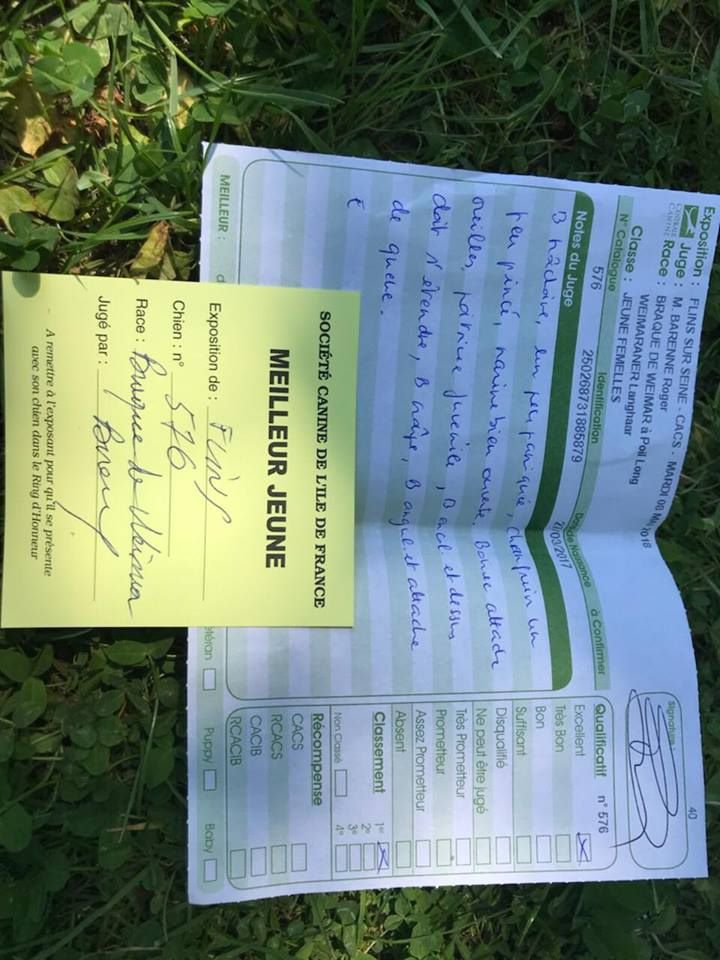 40
Exposition : FLINS SUR SEINE - CACS - MARDI 08 2018
CENTRALE CANINE
Juge : M. BARENNE Roger
Race : BRAQUE DE WEIMAR à Poil Long
WEIMARANER Langhaar
Classe : JEUNE FEMELLES
Signature
N° Catalogue Identification Date de Naissance à Confirmer
576 250268731885879 /03/2017
Notes du Juge
B mâchoire, un peu paniquée, chanfrein un
peu pincé, narine bien ouverte. Bonne attache
oreilles, poitrine juvénile, B and et dessus
doit s'étendre, B B angul et attache
de queue.
Qualificatif n° 576
Excellent
Très Bon
Bon
Suffisant
Disqualifié
Ne peut être jugé
Très Prometteur
Prometteur
Assez Prometteur
Absent
Classement
1er
2e
3e
4e
Non Classé
Récompense
CACS
RCACS
CACIB
RCACIB
MEILLEUR : Vétéran Puppy Baby
SOCIÉTÉ CANINE DE L'ILE DE FRANCE
MEILLEUR JEUNE
Exposition de : FLINS
Chien : n° 576
Race : Braque de Weimar
Jugé par : Barenne
A remettre à l'exposant pour qu'il se présente
avec son chien dans le Ring d'Honneur